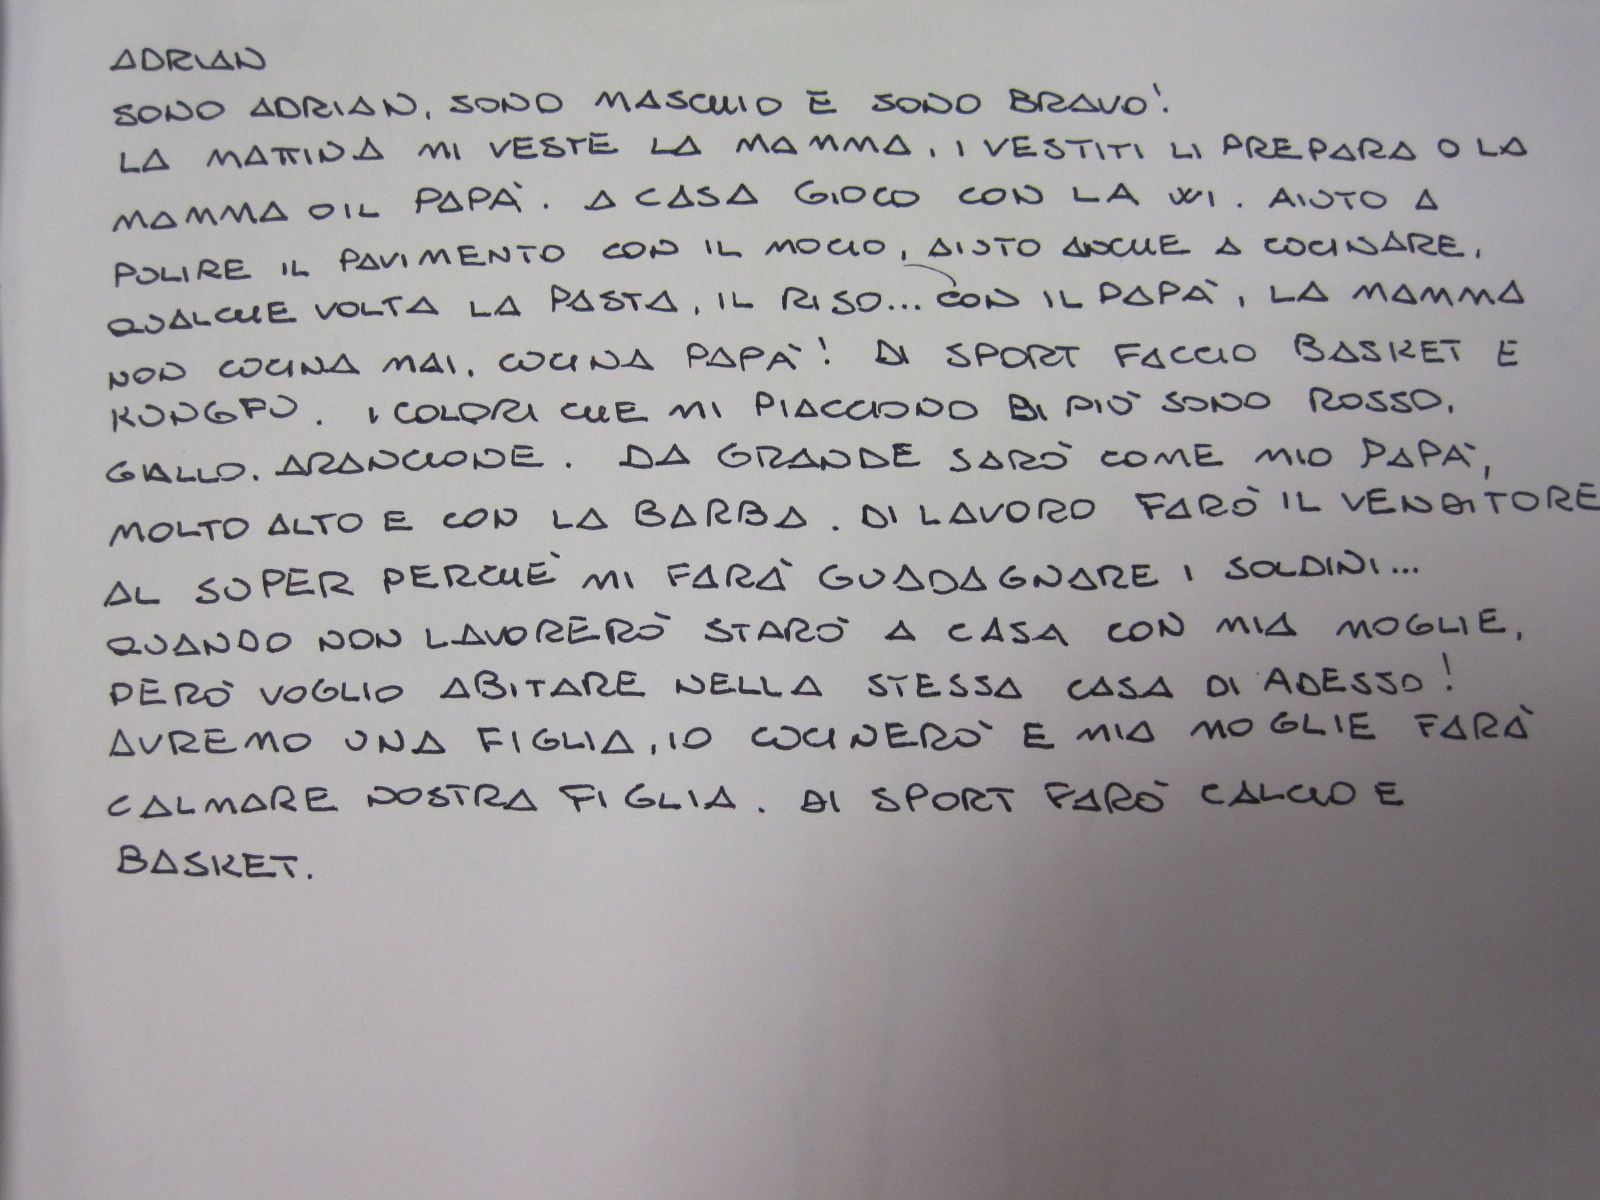 ADRIAN
SONO ADRIAN, SONO MASCHIO E SONO BRAVO!
LA MATTINA MI VESTE LA MAMMA, I VESTITI LI PREPARA O LA
MAMMA O IL PAPÀ. A CASA GIOCO CON LA WI. AIUTO A
PULIRE IL PAVIMENTO CON IL MOCIO, AIUTO ANCHE A CUCINARE,
QUALCHE VOLTA LA PASTA, IL RISO... CON IL PAPÀ, LA MAMMA
NON CUCINA MAI, CUCINA PAPÀ! DI SPORT FACCIO BASKET E
KUNGFU. I COLORI CHE MI PIACCIONO DI PIÙ SONO ROSSO,
GIALLO, ARANCIONE. DA GRANDE SARÒ COME MIO PAPÀ,
MOLTO ALTO E CON LA BARBA. DI LAVORO FARÒ IL VENDITORE
AL SUPER PERCHÈ MI FARÀ GUADAGNARE I SOLDINI...
QUANDO NON LAVORERÒ STARÒ A CASA CON MIA MOGLIE,
PERÒ VOGLIO ABITARE NELLA STESSA CASA DI ADESSO!
AVREMO UNA FIGLIA, IO CUCINERÒ E MIA MOGLIE FARÀ
CALMARE NOSTRA FIGLIA. DI SPORT FARÒ CALCIO E
BASKET.